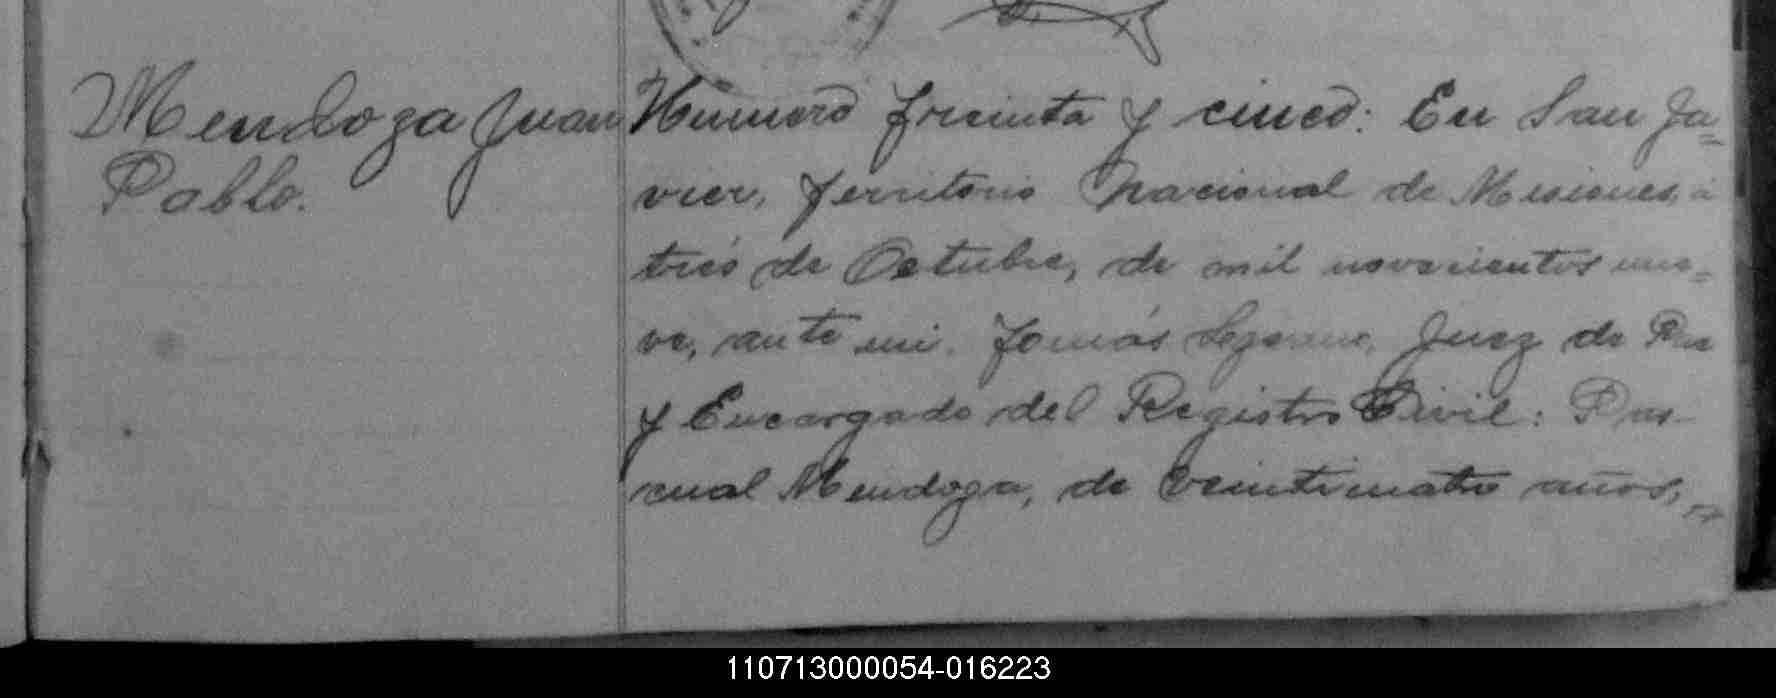 Mendoza Juan
Pablo.
Numero treinta y cinco: En San Ja=
vier, Territorio Nacional de Misiones, á
tres de Octubre, de mil novecientos nue=
ve, ante mi. Tomás Juez de Paz
y Encargado del Registro Civil: Pas-
cual Mendoza, de veinticuatro años,
110713000054-016223